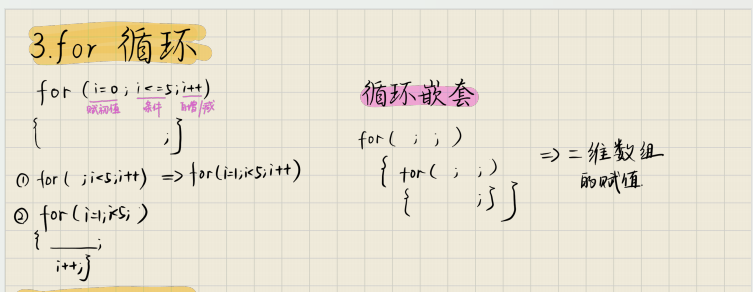 3.for 循环
for (i=0; i<=5;i++)
赋初值 条件 自增/减
{ ;}
① for( ;i<5;i++) => for(i=1;i<5;i++)
② for(i=1;i<5; )
{ ____;
i++;}
循环嵌套
for( ; ; )
{ for( ; ;)
{ ;} }
=> 二维数组
的赋值